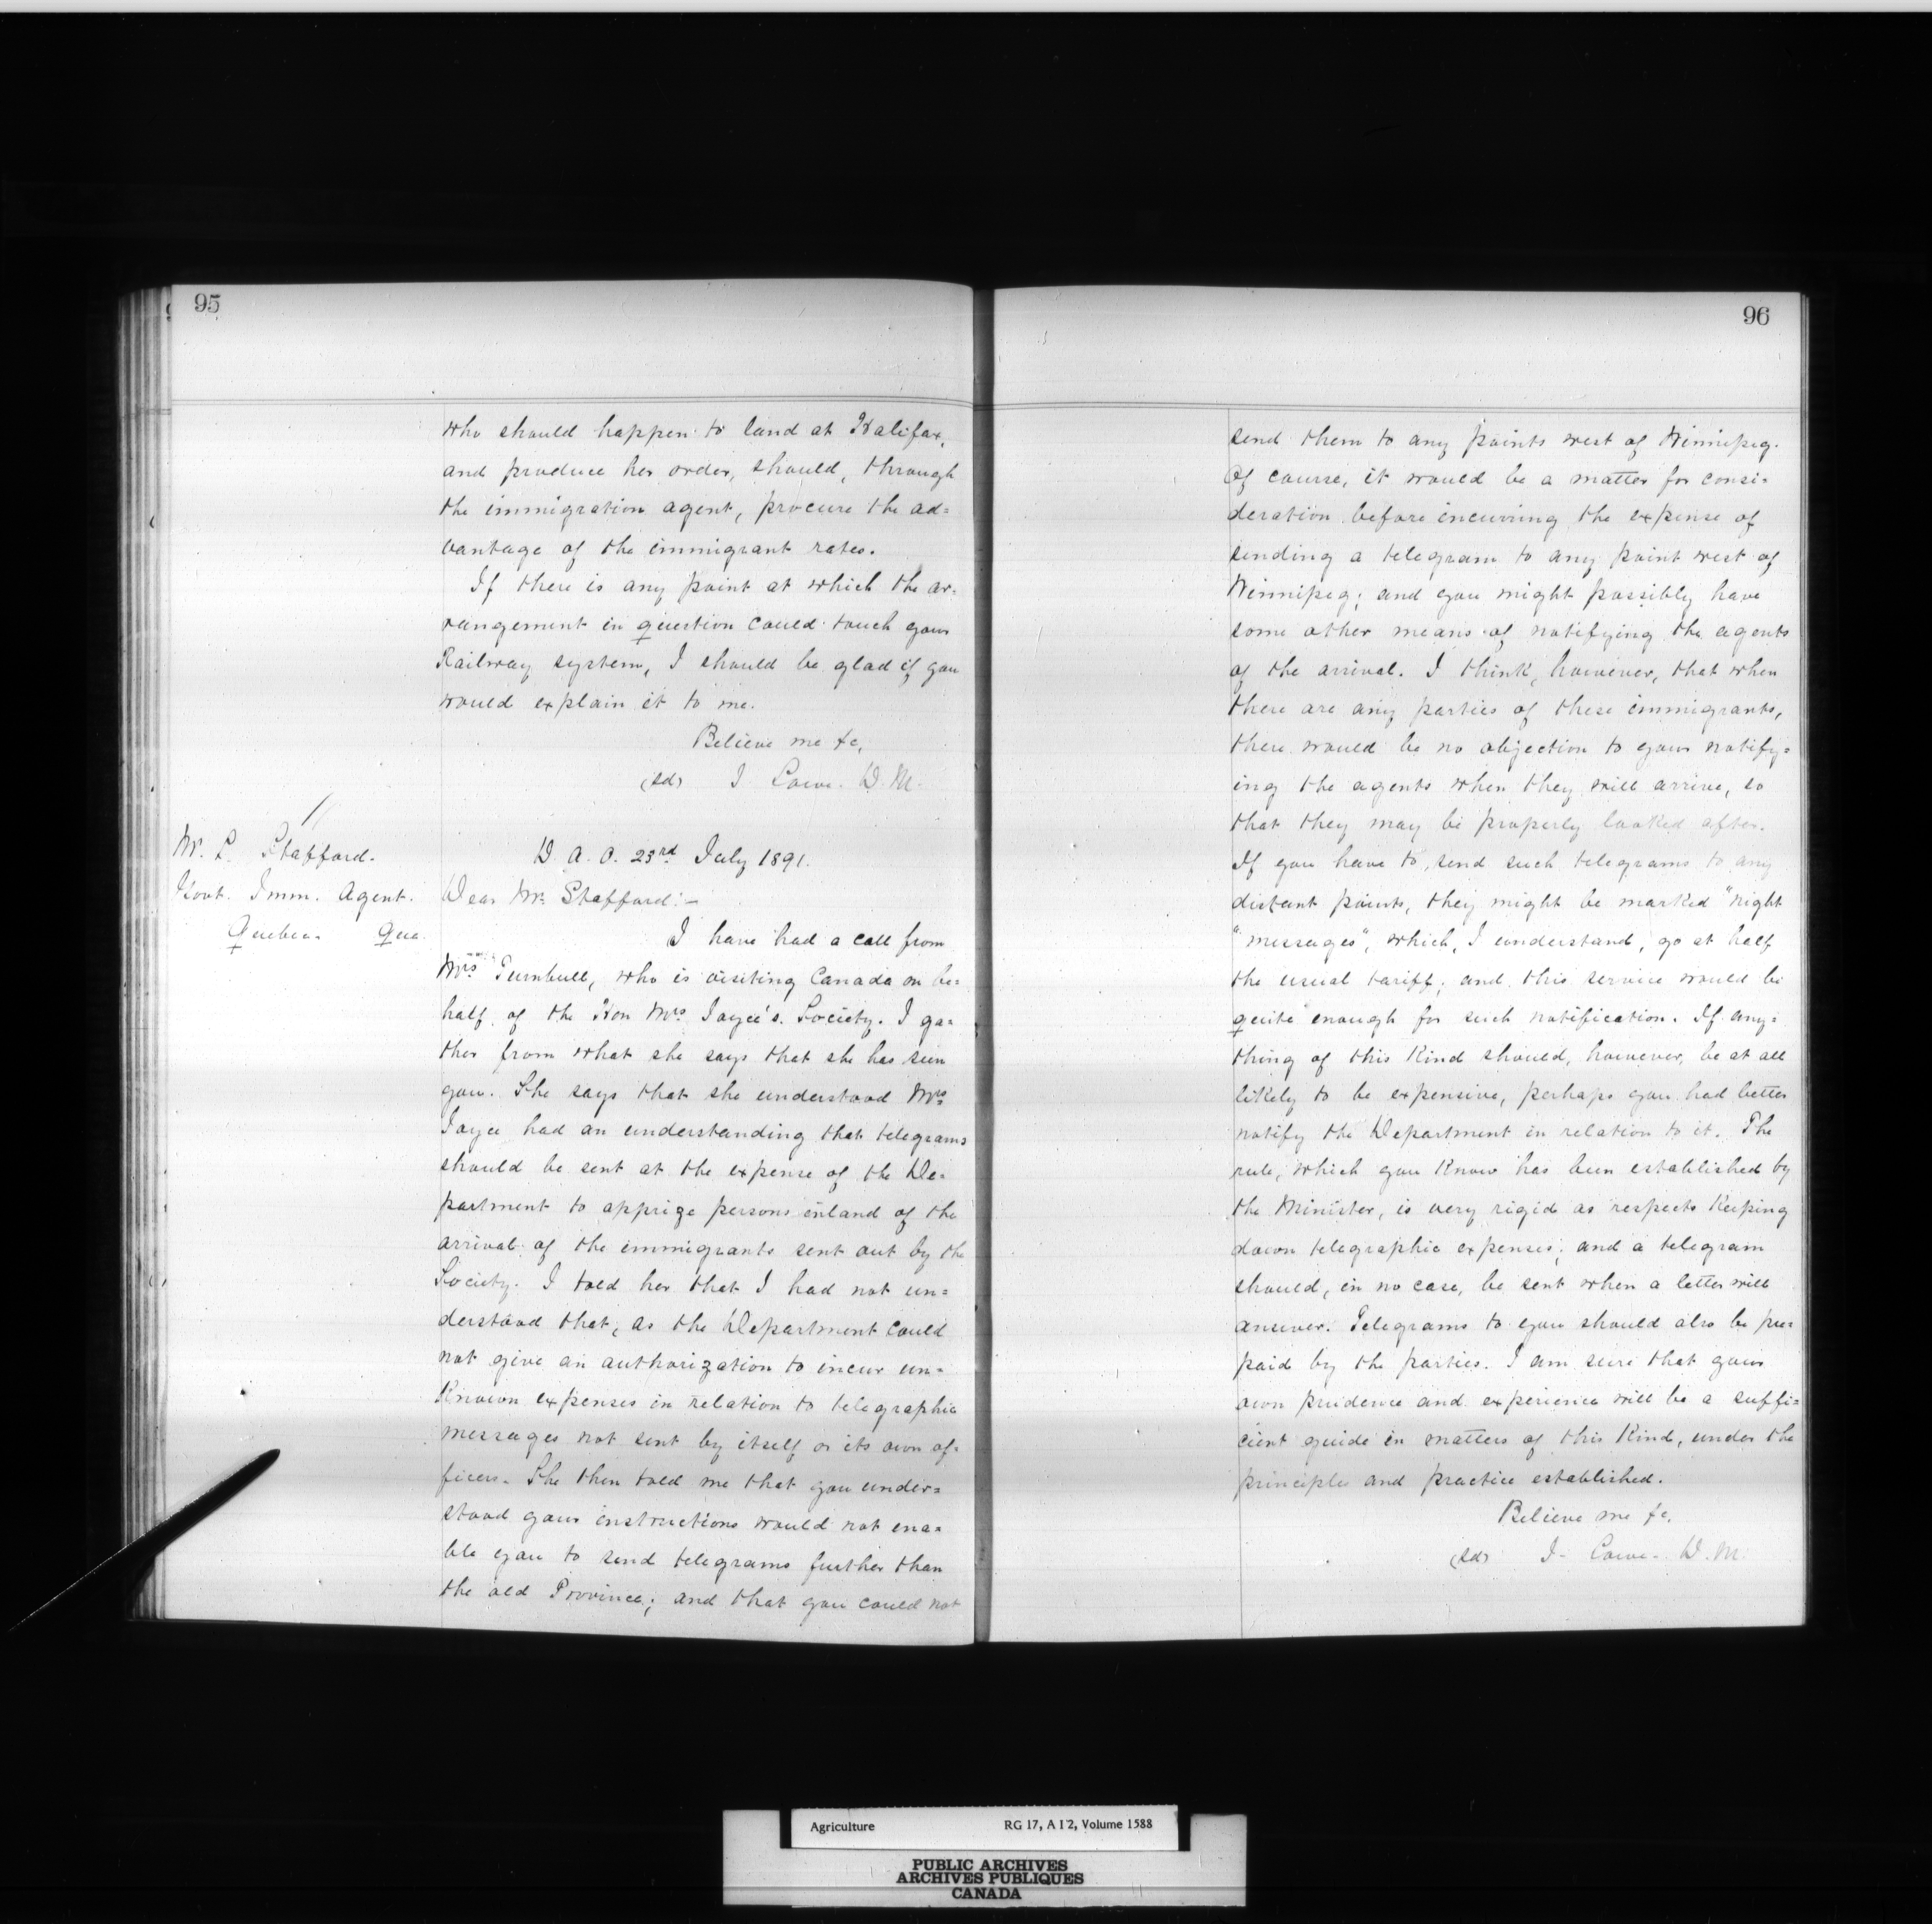 95
who should happen to land at Halifax,
and produce her order, should, through
the immigration agent, procure the ad=
vantage of the immigrant rates.
If there is any point at which the ar=
rangement in question could touch your
Railway system, I should be glad if you
would explain it to me.
Believe me &c,
(sd) J Lowe. D. M.
Mr. L. Stafford.
Govt. Imm. Agent.
Quebec. Que.
D. A. O. 23rd July 1891.
Dear Mr. Stafford:-
I have had a call from
Mrs Turnbull, who is visiting Canada on be=
half of the Hon Mrs Joyce's Society. I ga=
ther from what she says that she has seen
you. She says that she understood Mrs
Joyce had an understanding that telegrams
should be sent at the expense of the De=
partment to apprize persons inland of the
arrival of the immigrants sent out by the
Society. I told her that I had not un=
derstood that, as the Department could
not give an authorization to incur un=
known expenses in relation to telegraphic
messages not sent by itself or its own of=
ficers. She then told me that you under=
stood your instructions would not ena=
ble you to send telegrams further than
the old Province; and that you could not
96
send them to any points west of Winnipeg.
Of course, it would be a matter for consi=
deration before incurring the expense of
sending a telegram to any point west of
Winnipeg; and you might possibly have
some other means of notifying the agents
of the arrival. I think, however, that when
there are any parties of these immigrants,
there would be no objection to your notify=
ing the agents when they will arrive, so
that they may be properly looked after.
If you have to send such telegrams to any
distant points, they might be marked "night
"messages", which, I understand, go at half
the usual tariff; and this service would be
quite enough for such notification. If any=
thing of this kind should, however, be at all
likely to be expensive, perhaps you had better
notify the Department in relation to it. The
rule, which you know has been established by
the Minister, is very rigid as respects keeping
down telegraphic expenses; and a telegram
should, in no case, be sent when a letter will
answer. Telegrams to you should also be pre=
paid by the parties. I am sure that your
own prudence and experience will be a suffi=
cient guide in matters of this kind, under the
principles and practice established.
Believe me &c.
(sd) J. Lowe. D. M.
Agriculture RG 17, A I 2, Volume 1588
PUBLIC ARCHIVES
ARCHIVES PUBLIQUES
CANADA